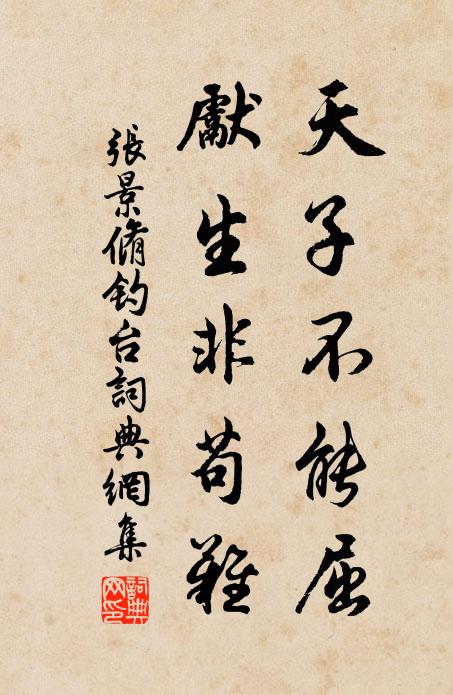 天子不能屈
獻生非苟難
張景脩釣台詞典網集
詞典網印